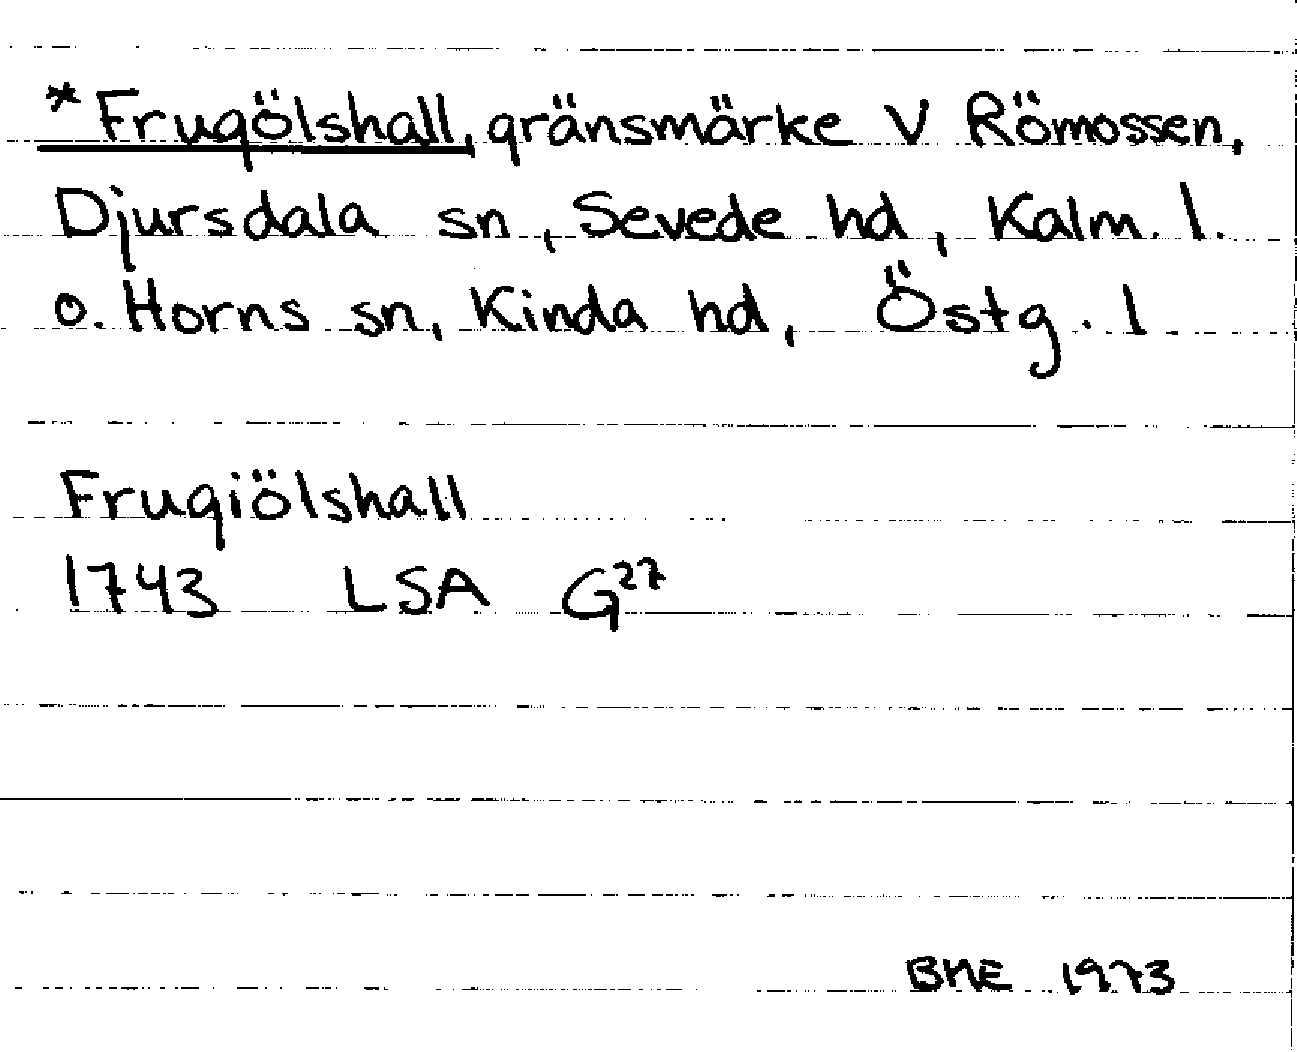 *Frugölshall, gränsmärke V Römossen,
Djursdala sn, Sevede hd, Kalm. l.
o. Horns sn, Kinda hd, Östg. l
Frugiölshall
1743 LSA G27
BHE 1973